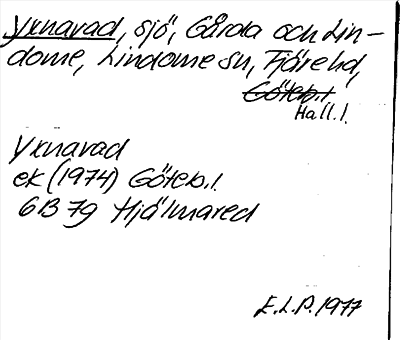 Yxnavad, sjö, Gårda och Lin-
dome, Lindome sn, Fjäre hd,
Göteb.l
Hall.l.
Yxnavad
ek (1974) Göteb.l.
6B 7g Hjälmared
E.L.P. 1977